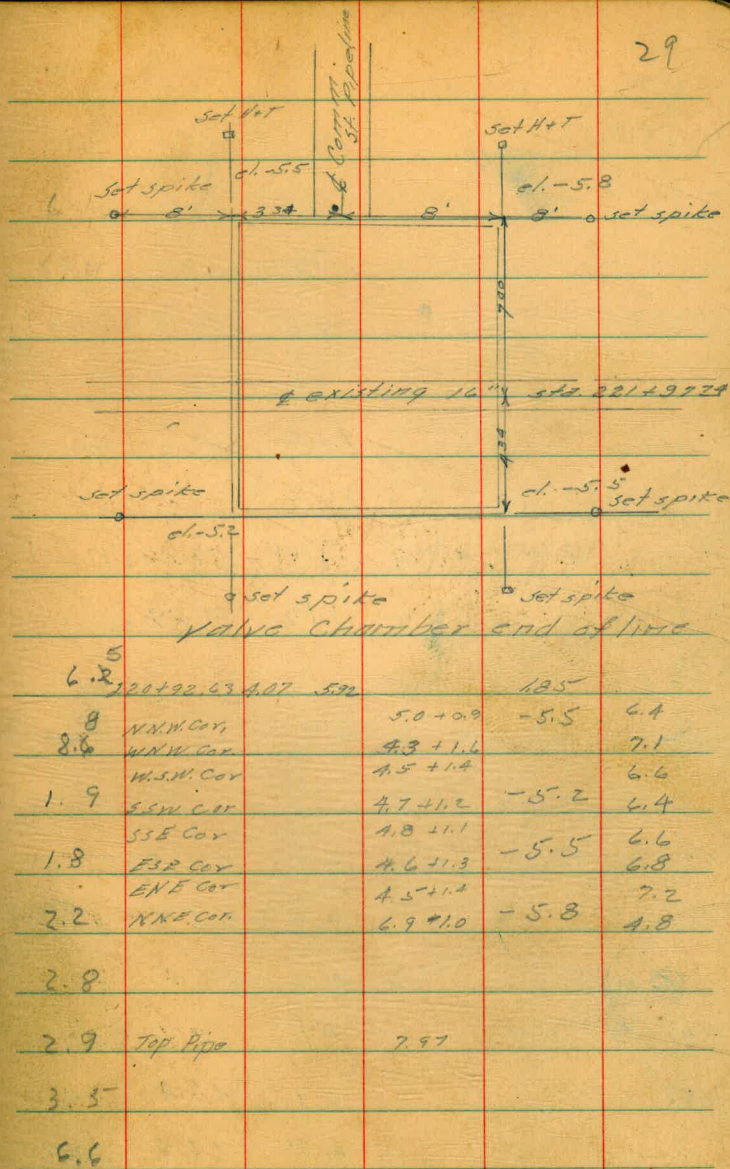 29
℄ Comm'l
St. Pipeline
set H+T
set H+T
el. -5.5
el. -5.8
set spike
set spike
8' 3.34 8' 8'
7.00
℄ existing 16" sta. 221+97.74
4.34
set spike
el. -5.5
set spike
el. -5.2
set spike
set spike
Valve Chamber end of line
220+92.63 4.07 5.92 1.85
N.N.W. Cor. 5.0 +0.9 -5.5 6.4
8.6 W.N.W. Cor 4.3 +1.6 7.1
W.S.W. Cor 4.5 +1.4 6.6
1.9 S.S.W Cor 4.7 +1.2 -5.2 6.4
SSE Cor 4.8 +1.1 6.6
1.8 ESE Cor 4.6 +1.3 -5.5 6.8
ENE Cor 4.5 +1.4 7.2
2.2 N.N.E. Cor. 6.9 1.0 -5.8 4.8
2.8
2.9 Top Pipe 7.97
3.5
6.6